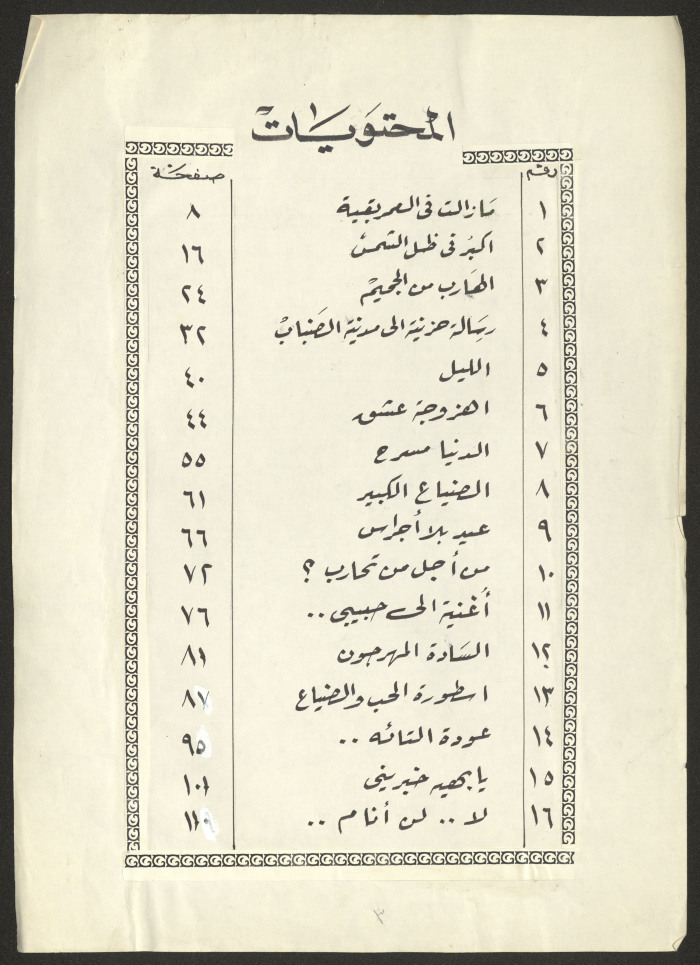 المحتويات
رقم صفحة
١ مازالت في الطريقية ٨
٢ اكبر في ظل الشمس ١٦
٣ الهارب من الجحيم ٢٤
٤ رسالة حزينة الى مدينة الضباب ٣٢
٥ الليل ٤٠
٦ اهزوجة عشق ٤٤
٧ الدنيا مسرح ٥٥
٨ الضياع الكبير ٦١
٩ عيد بلا أجراس ٦٦
١٠ من أجل من تحارب ؟ ٧٢
١١ أغنية الى حبيبي .. ٧٦
١٢ السادة المهرجون ٨١
١٣ اسطورة الحب والضياع ٨٧
١٤ عودة التائه .. ٩٥
١٥ يا بهيه خبريني ١٠١
١٦ لا .. لن أنام ..
٣